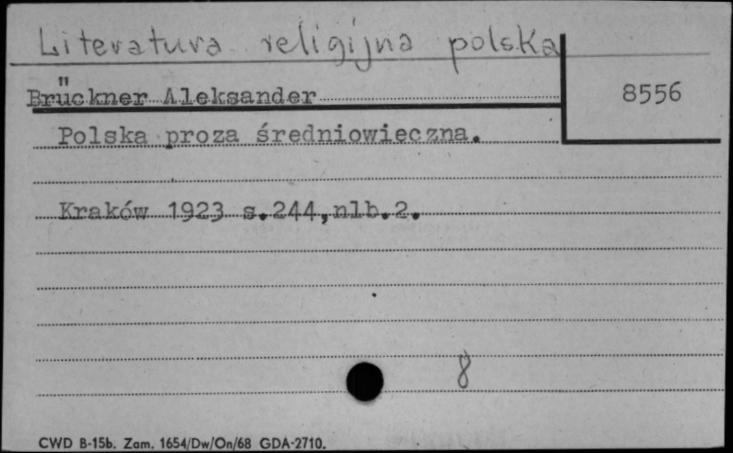 Literatura religijna polska
Brückner Aleksander
8556
Polska proza średniowieczna.
Kraków 1923 s.244,nlb.2.
8
CWD B-15b. Zam. 1654/Dw/On/68 GDA-2710.